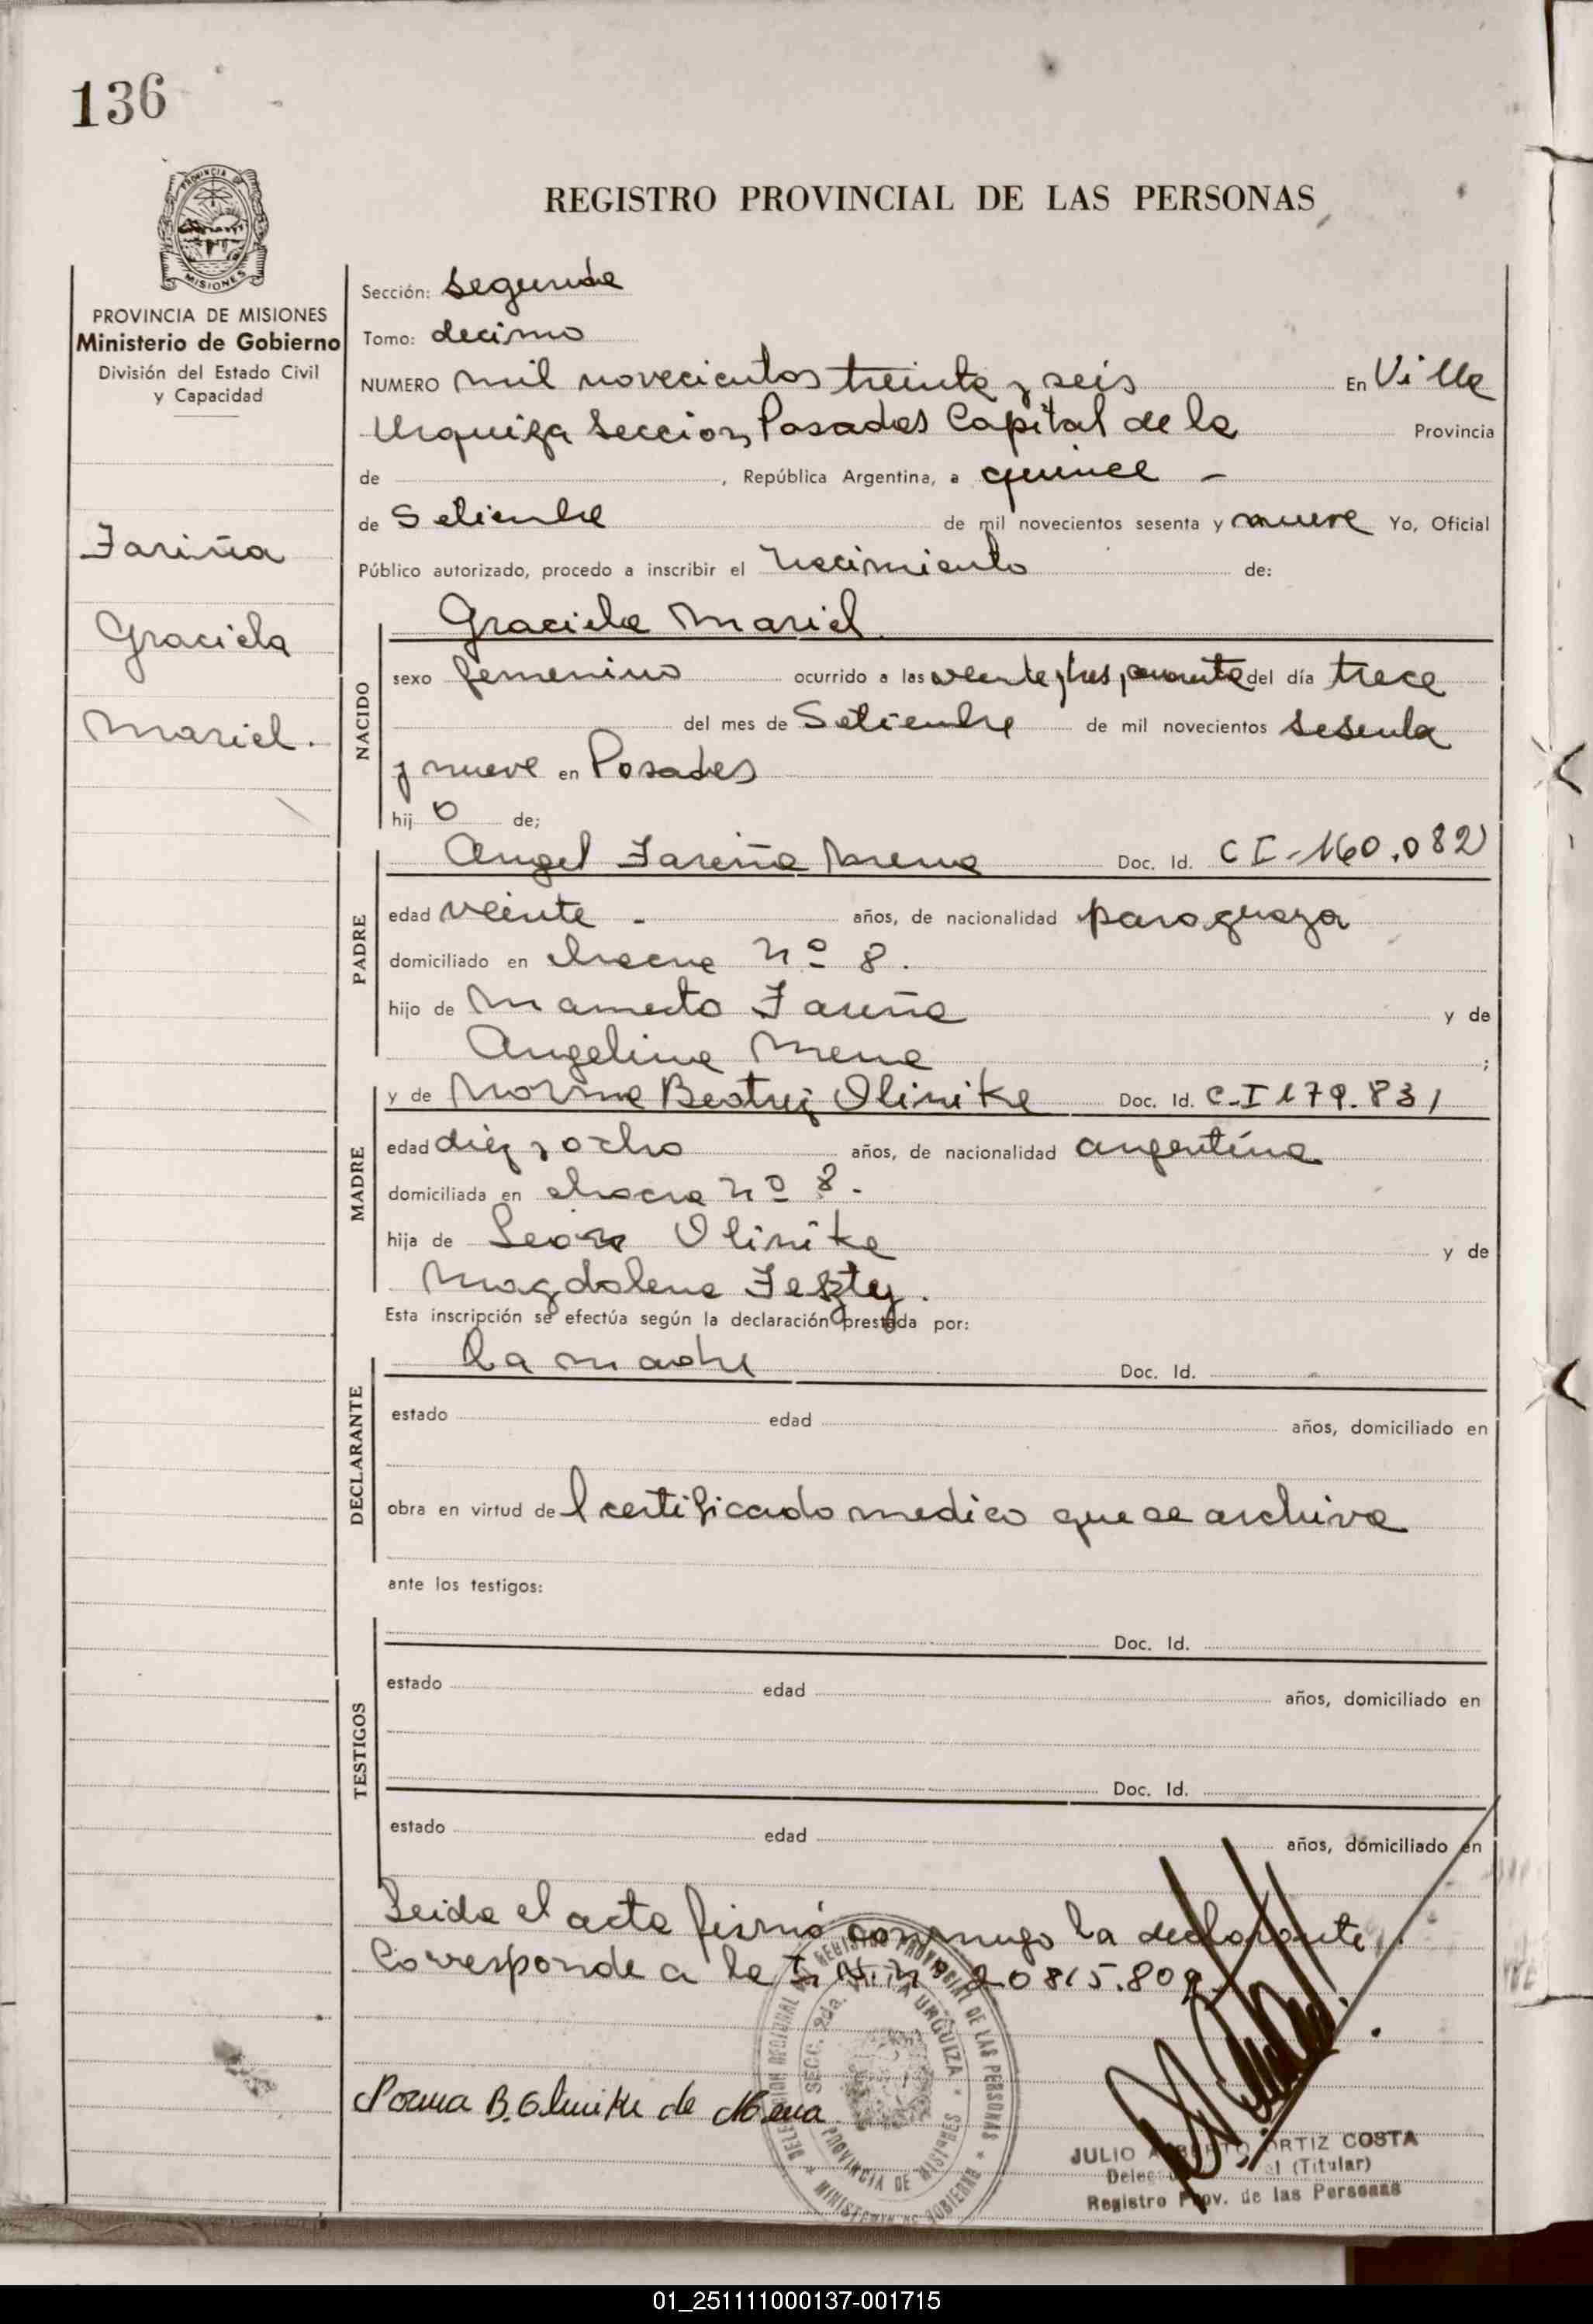 136
PROVINCIA DE MISIONES
REGISTRO PROVINCIAL DE LAS PERSONAS
PROVINCIA DE MISIONES
Ministerio de Gobierno
División del Estado Civil
y Capacidad
Fariña
Graciela
Mariel.
Sección: Segunda
Tomo: decimo
NUMERO mil novecientos treinta y seis En Villa
Urquiza Seccion, Posadas Capital de la Provincia
de , República Argentina, a quince -
de Setiembre de mil novecientos sesenta y nueve Yo, Oficial
Público autorizado, procedo a inscribir el nacimiento de:
NACIDO
Graciela Mariel
sexo femenino ocurrido a las veinte y tres, cuarenta del día trece
del mes de Setiembre de mil novecientos sesenta
y nueve en Posadas
hij o de;
PADRE
Angel Fariña Mena Doc. Id. C I - 160.082
edad veinte - años, de nacionalidad paraguaya
domiciliado en chacra nº 8.
hijo de Mamerto Fariña y de
Angelina Mena ;
MADRE
y de Norma Beatriz Olinike Doc. Id. C.I 179.831
edad diez y ocho años, de nacionalidad argentina
domiciliada en chacra nº 8.
hija de Leon Olinike y de
Magdalena
Esta inscripción se efectúa según la declaración prestada por:
DECLARANTE
la madre Doc. Id.
estado edad años, domiciliado en
obra en virtud de l certificado medico que se archiva
ante los testigos:
TESTIGOS
Doc. Id.
estado edad años, domiciliado en
Doc. Id.
estado edad años, domiciliado en
Leida el acta firmó conmigo la declarante.
Corresponde a la 20815.809
Norma B. Olinike de Mena
DELEGACION REGIONAL REGISTRO PROVINCIAL DE LAS PERSONAS * MINISTERIO DE GOBIERNO *
SECC. 2da. VILLA URQUIZA * PROVINCIA DE MISIONES
JULIO ALBERTO ORTIZ COSTA
(Titular)
Registro Prov. de las Personas
01_251111000137-001715